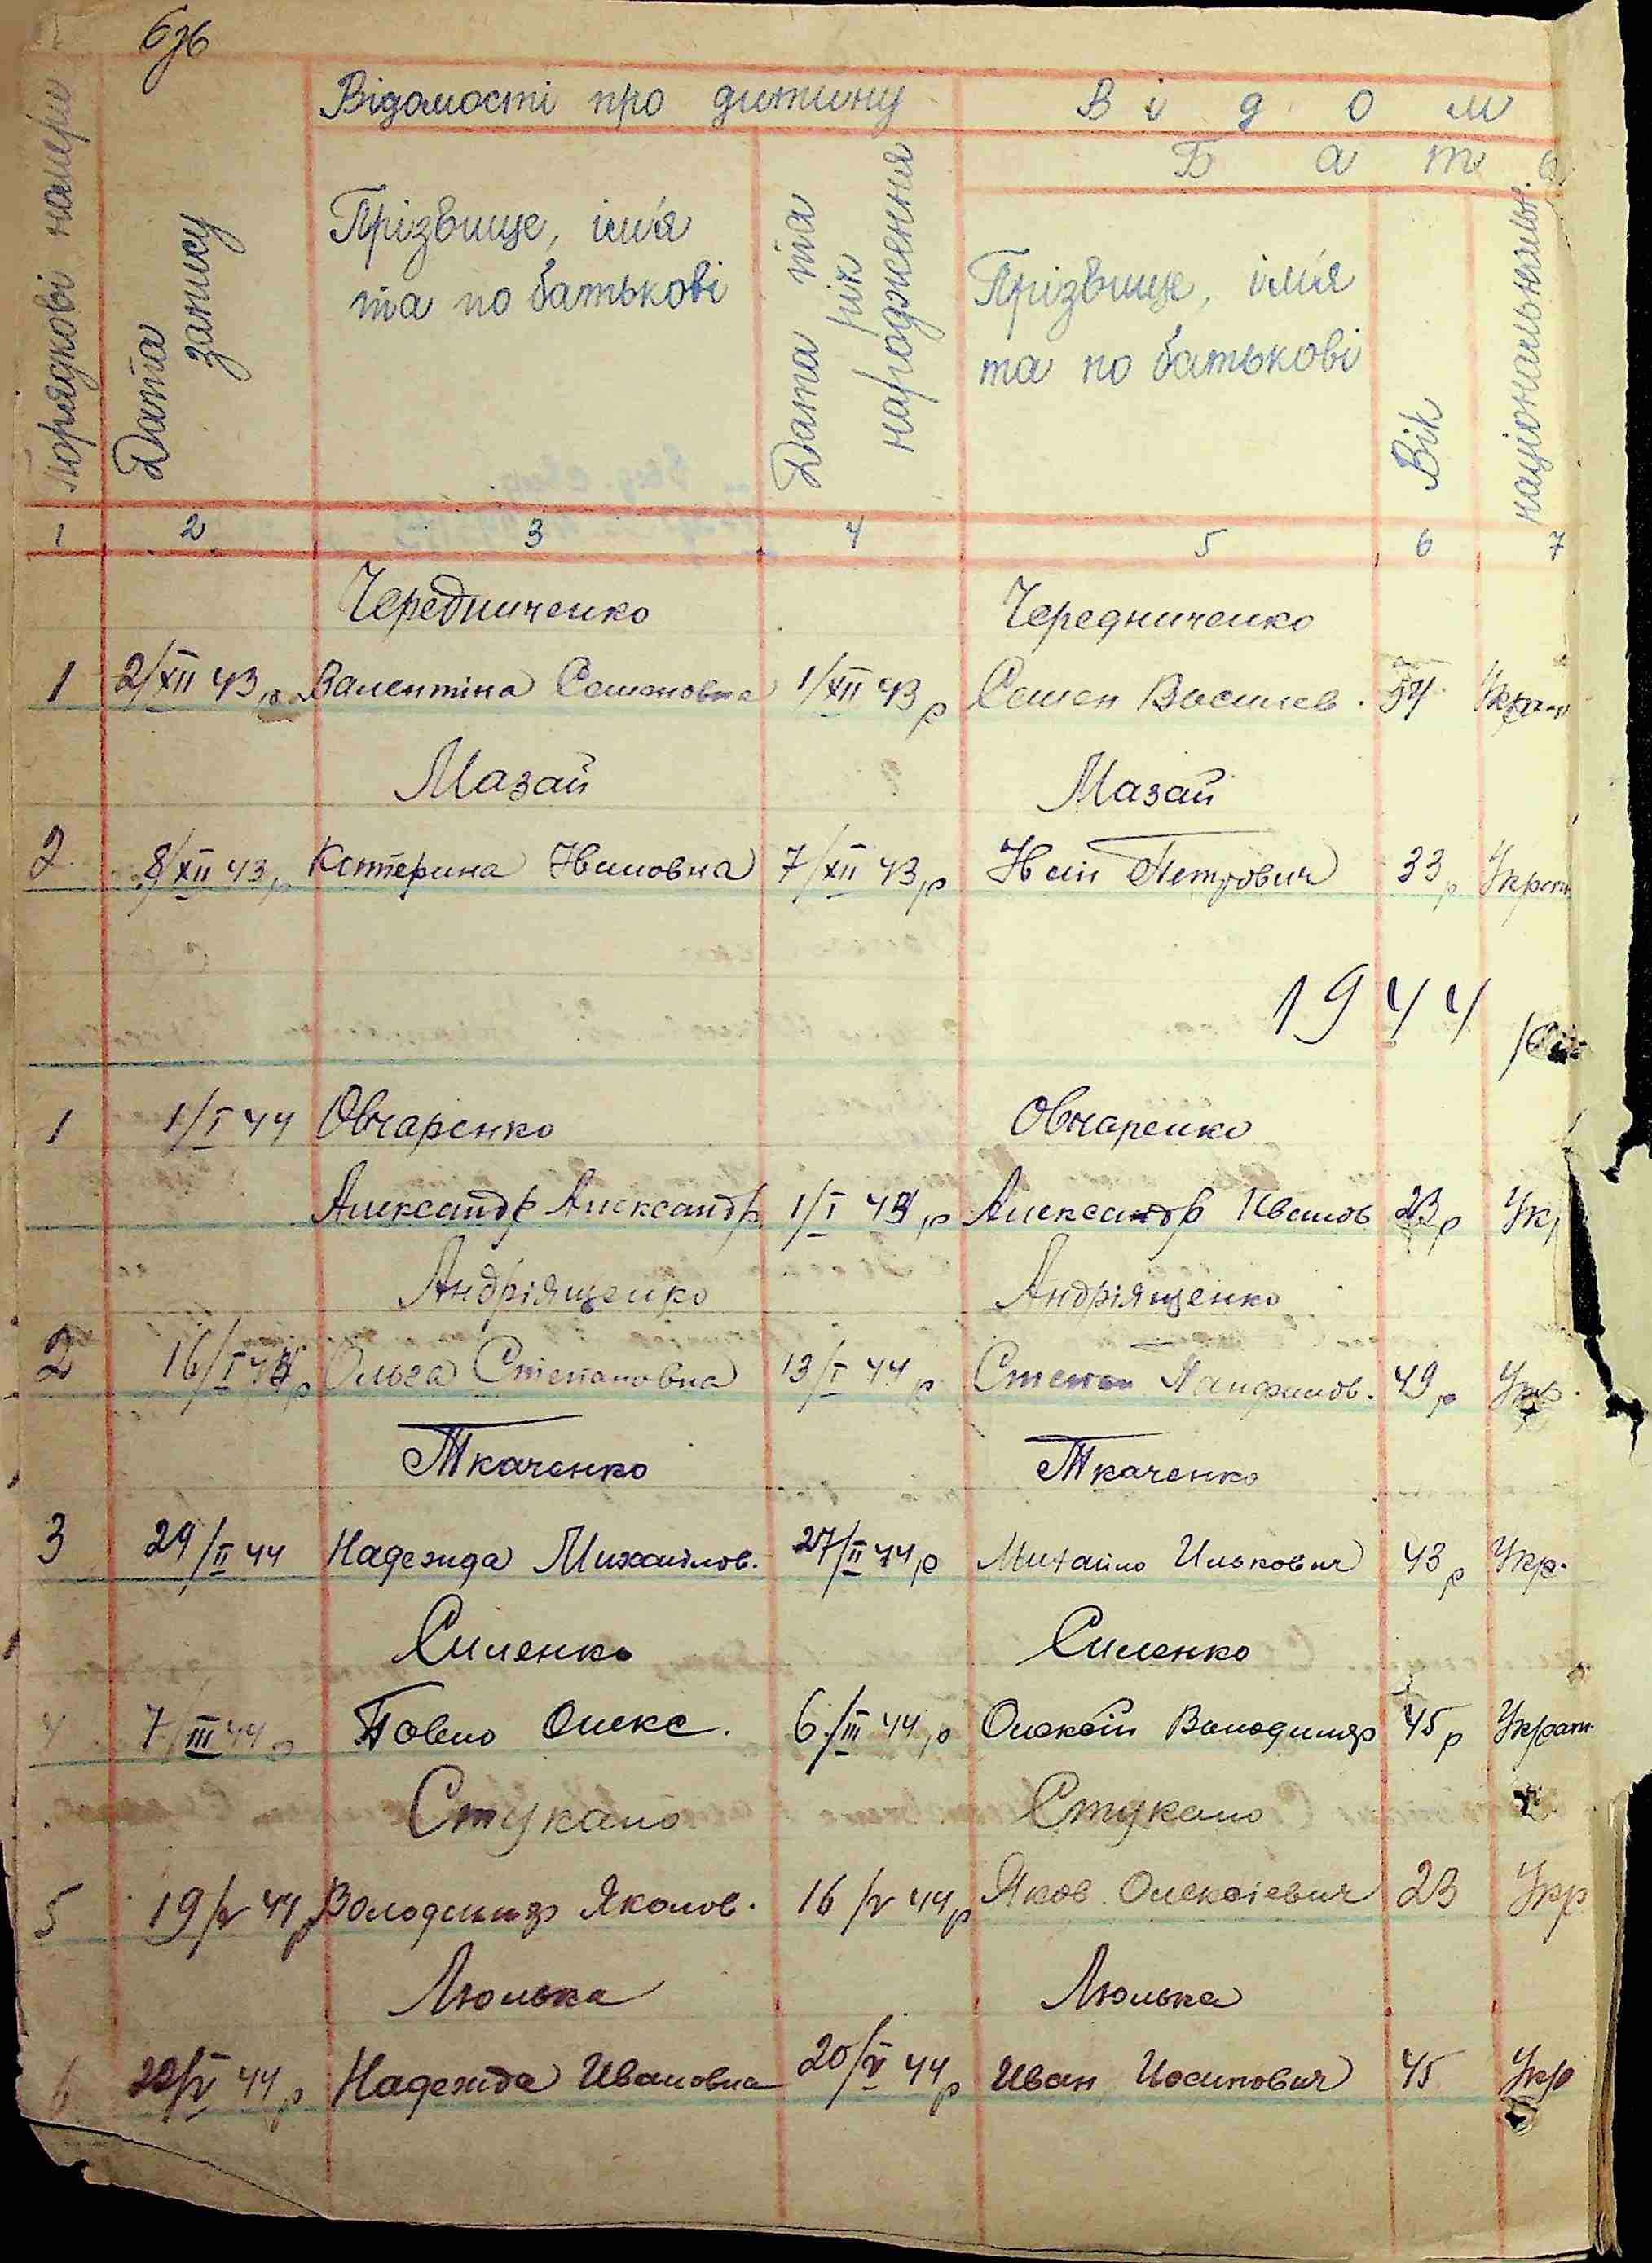 Відомості про дитину
В і д о м
Б а т
Порядкові номери
Дата запису
Прізвище, ім'я
та по батькові
Дата та рік народження
Прізвище, ім'я
та по батькові
Вік
національність
1 2 3 4 5 6 7
Чередниченко Чередниченко
1 2/XII 43 р Валентіна Семоновна 1/XII 43 р Семен Василев.
Мазай Мазай
2 8/XII 43 р Катерина Ивановна 7/XII 43 р Иван Петрович 33 р Украї
1944
1 1/I 44 Овчаренко Овчаренко
Александр Александр 1/I 44 р Александр Иванов 23 р Ук
Андріященко Андріященко
2 16/I 44 р Ольга Степановна 13/I 44 р Степан Панфилов. 49 р Укр.
Ткаченко Ткаченко
3 29/II 44 Надежда Михайлов. 27/II 44 р Михайло Илькович 43 р Укр.
Силенко Силенко
4 7/III 44 р Павло Олекс. 6/III 44 р Олексій Володимир 45 р Украин
Стукало Стукало
5 19/V 44 р Володимир Яколов. 16/V 44 р Яков Олексієвич 23 Укр
Люлька Люлька
6 22/V 44 р Надежда Ивановна 20/V 44 р Иван Иосипович 45 Укр